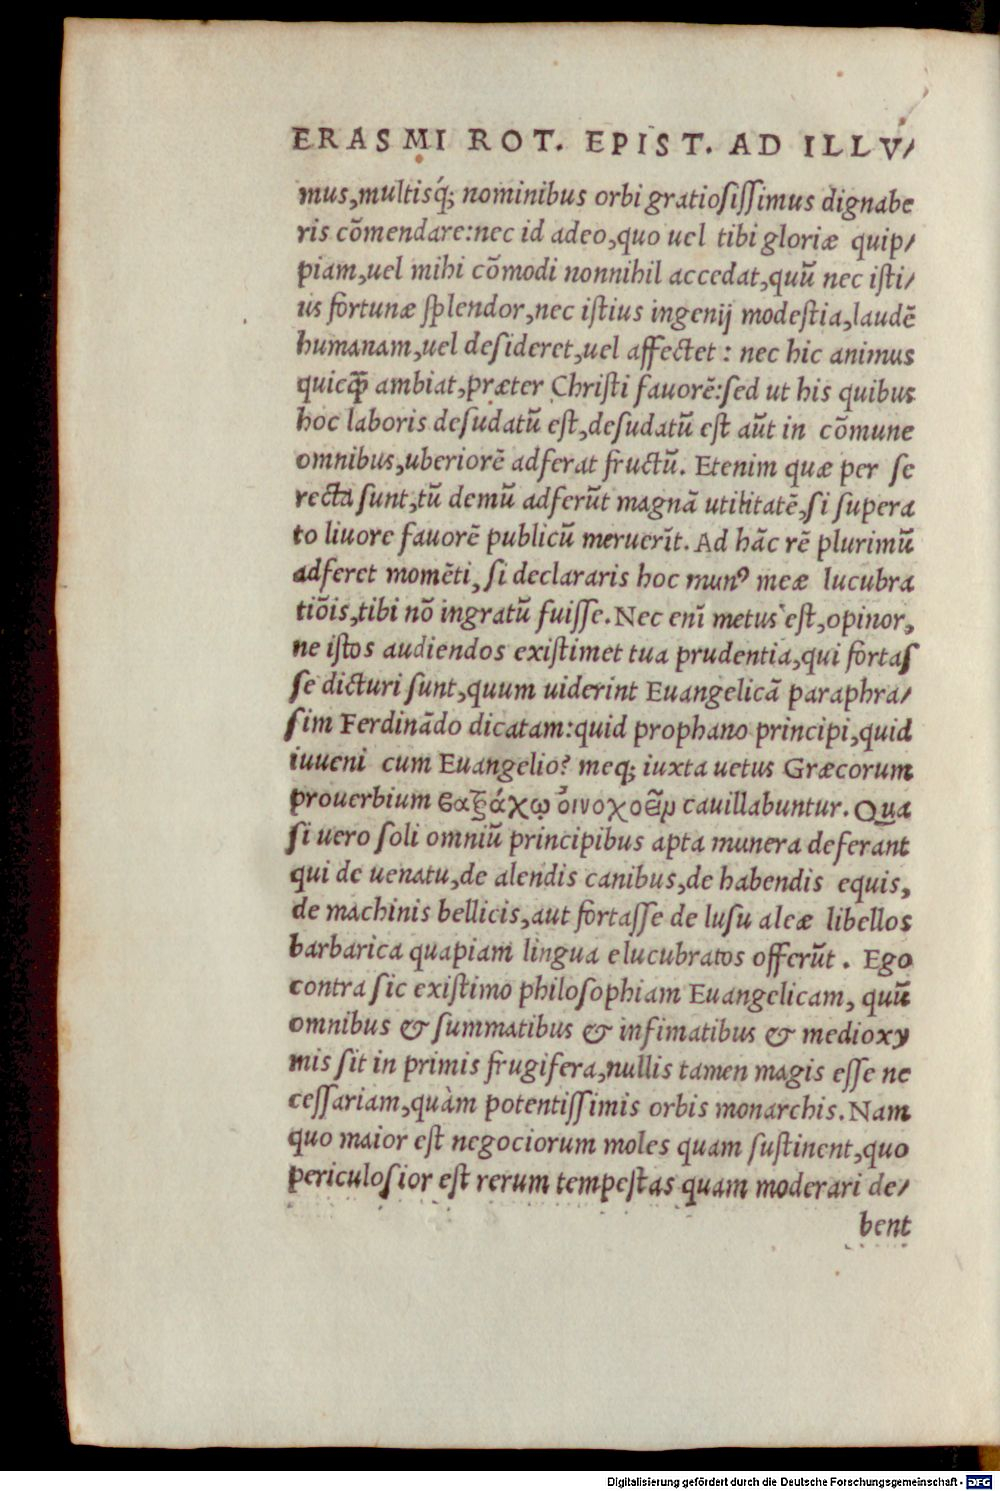 ERASMI ROT. EPIST. AD ILLV/
mus,multisq́; nominibus orbi gratiosissimus dignabe
ris cõmendare:nec id adeo,quo uel tibi gloriæ quip/
piam,uel mihi cõmodi nonnihil accedat,quũ nec isti/
us fortunæ splendor,nec istius ingenij modestia,laudẽ
humanam,uel desideret,uel affectet : nec hic animus
quicq̃ ambiat,præter Christi fauorẽ:sed ut his quibus
hoc laboris desudatũ est,desudatũ est aũt in cõmune
omnibus,uberiorẽ adferat fructũ. Etenim quæ per se
recta sunt,tũ demũ adferũt magnã utilitatẽ,si supera
to liuore fauorẽ publicũ meruerĩt. Ad hãc rẽ plurimũ
adferet momẽti, si declararis hoc munꝰ meæ lucubra
tiõis,tibi nõ ingratũ fuisse. Nec enĩ metus est,opinor,
ne istos audiendos existimet tua prudentia,qui fortas
se dicturi sunt,quum uiderint Euangelicã paraphra/
sim Ferdinãdo dicatam:quid prophano principi,quid
iuueni cum Euangelio? meq; iuxta uetus Græcorum
prouerbium βατράχῳ οἰνοχοεῖν cauillabuntur. Qua
si uero soli omniũ principibus apta munera deferant
qui de uenatu,de alendis canibus,de habendis equis,
de machinis bellicis,aut fortasse de lusu aleæ libellos
barbarica quapiam lingua elucubratos offerũt . Ego
contra sic existimo philosophiam Euangelicam, quũ
omnibus & summatibus & infimatibus & medioxy
mis sit in primis frugifera,nullis tamen magis esse ne
cessariam,quàm potentissimis orbis monarchis. Nam
quo maior est negociorum moles quam sustinent,quo
periculosior est rerum tempestas quam moderari de/
bent
Digitalisierung gefördert durch die Deutsche Forschungsgemeinschaft - DFG